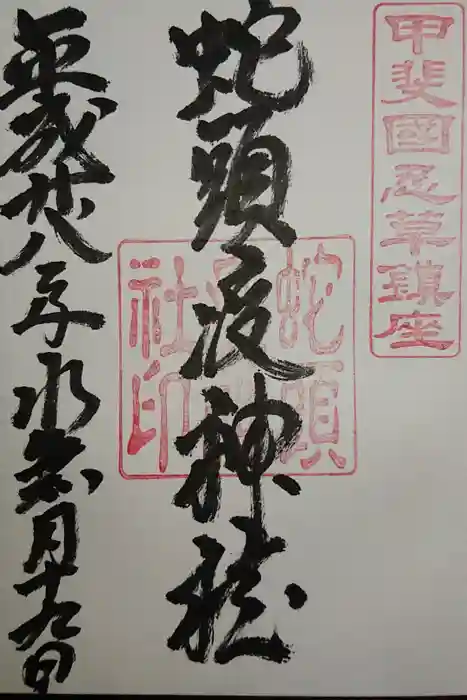 甲斐國忍草鎮座
蛇頭疫神社
蛇頭
疫神
社印
平成廿八年水無月十九日